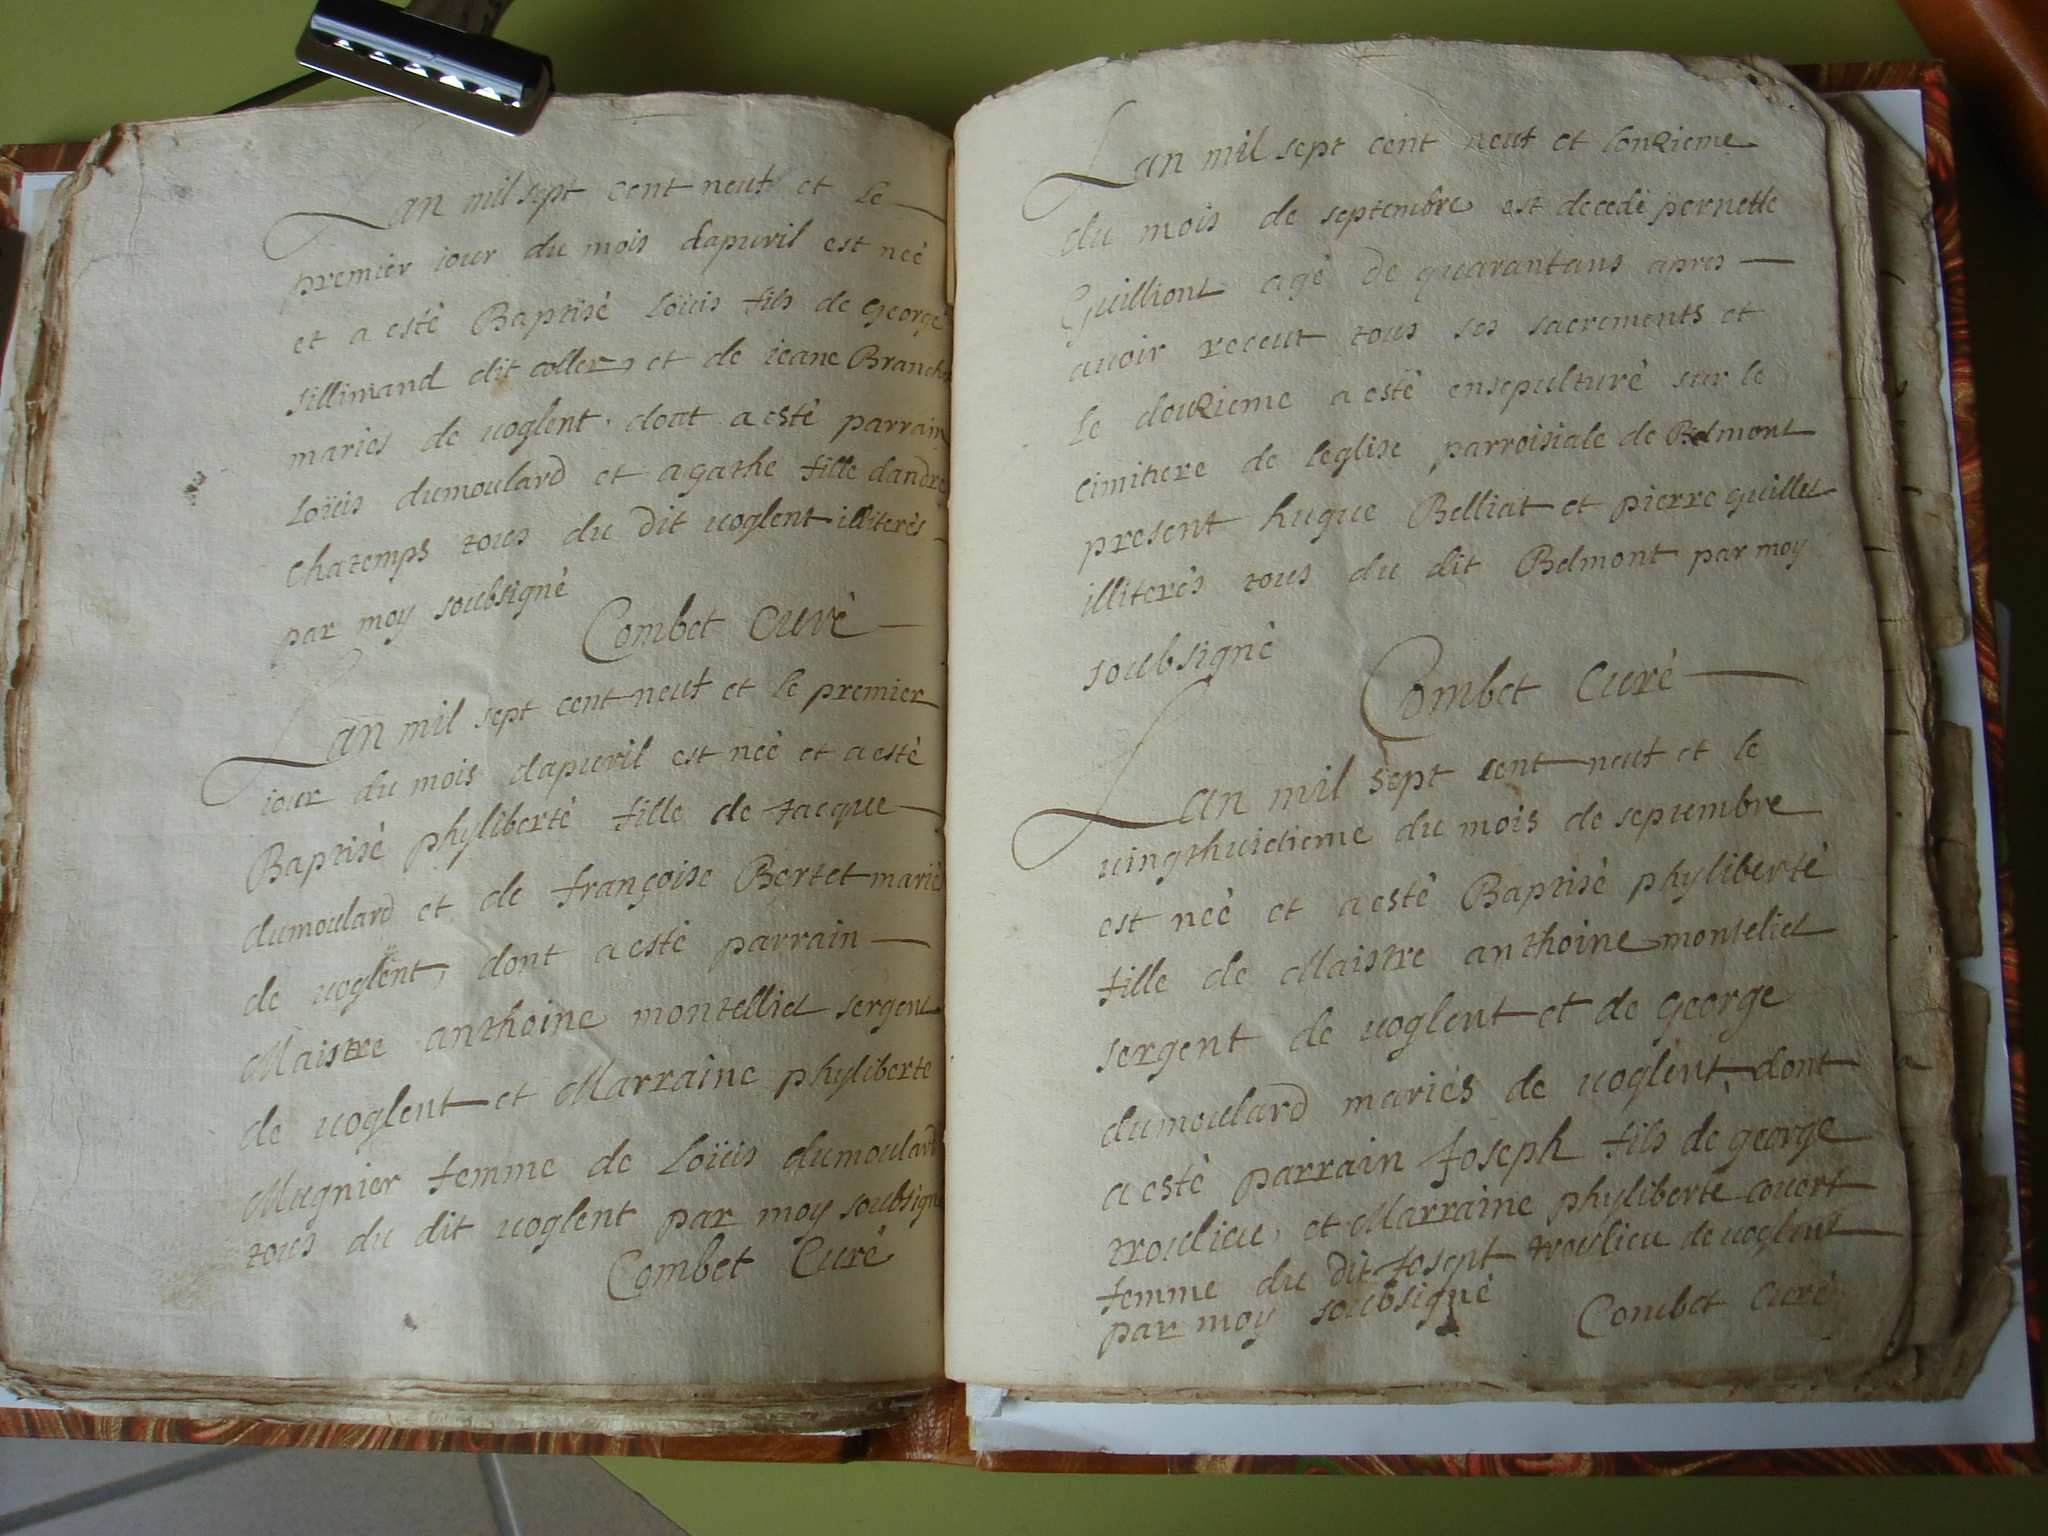 Lan mil sept cent neuf et le
premier iour du mois dapuril est neé
et a estè Baptisè Loüis fils de George
sillimand dit coller, et de ieane Branche
mariés de uoglent. dont a estè parrain
Loüis dumoulard et agathe fille dandré
Chatemps tous du dit uoglent illiterés
par moy soubsignè
Combet Curè
Lan mil sept cent neuf et le premier
iour du mois dapuril est neè et a estè
Baptisè phylibertè fille de Jacque
dumoulard et de françoise Bertet mariés
de uoglent, dont a estè parrain
Maistre anthoine montelliet sergent
de uoglent et Marraine phyliberte
Mugnier femme de Loüis dumoulard
tous du dit uoglent par moy soubsignè
Combet Curè
Lan mil sept cent neuf et lonzieme
du mois de septembre est decedè pernette
Guilliont agè de quarantans apres
auoir receut tous ses sacrements et
le douzieme a estè ensepulturè sur le
cimitiere de leglise parroisiale de Belmont
present hugue Belliat et pierre guillet
illiterés tous du dit Belmont par moy
soubsignè
Combet Curè
Lan mil sept cent neuf et le
uingthuictieme du mois de septembre
est neè et a estè Baptisè phylibertè
fille de Maistre anthoine monteliet
sergent de uoglent et de George
dumoulard mariés de uoglent, dont
a estè parrain Joseph fils de george
troulieu, et Marraine phylibertè couert
femme du dit Joseph troulieu de uoglent
par moy soubsignè
Combet Curè